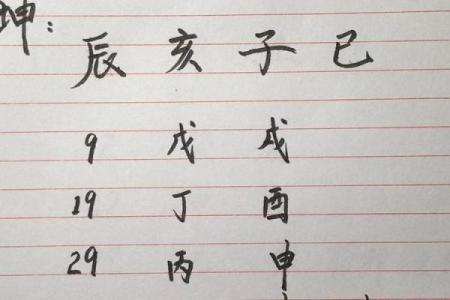 坤:
辰 亥 子 巳
9 戊 戌
19 丁 酉
29 丙 申